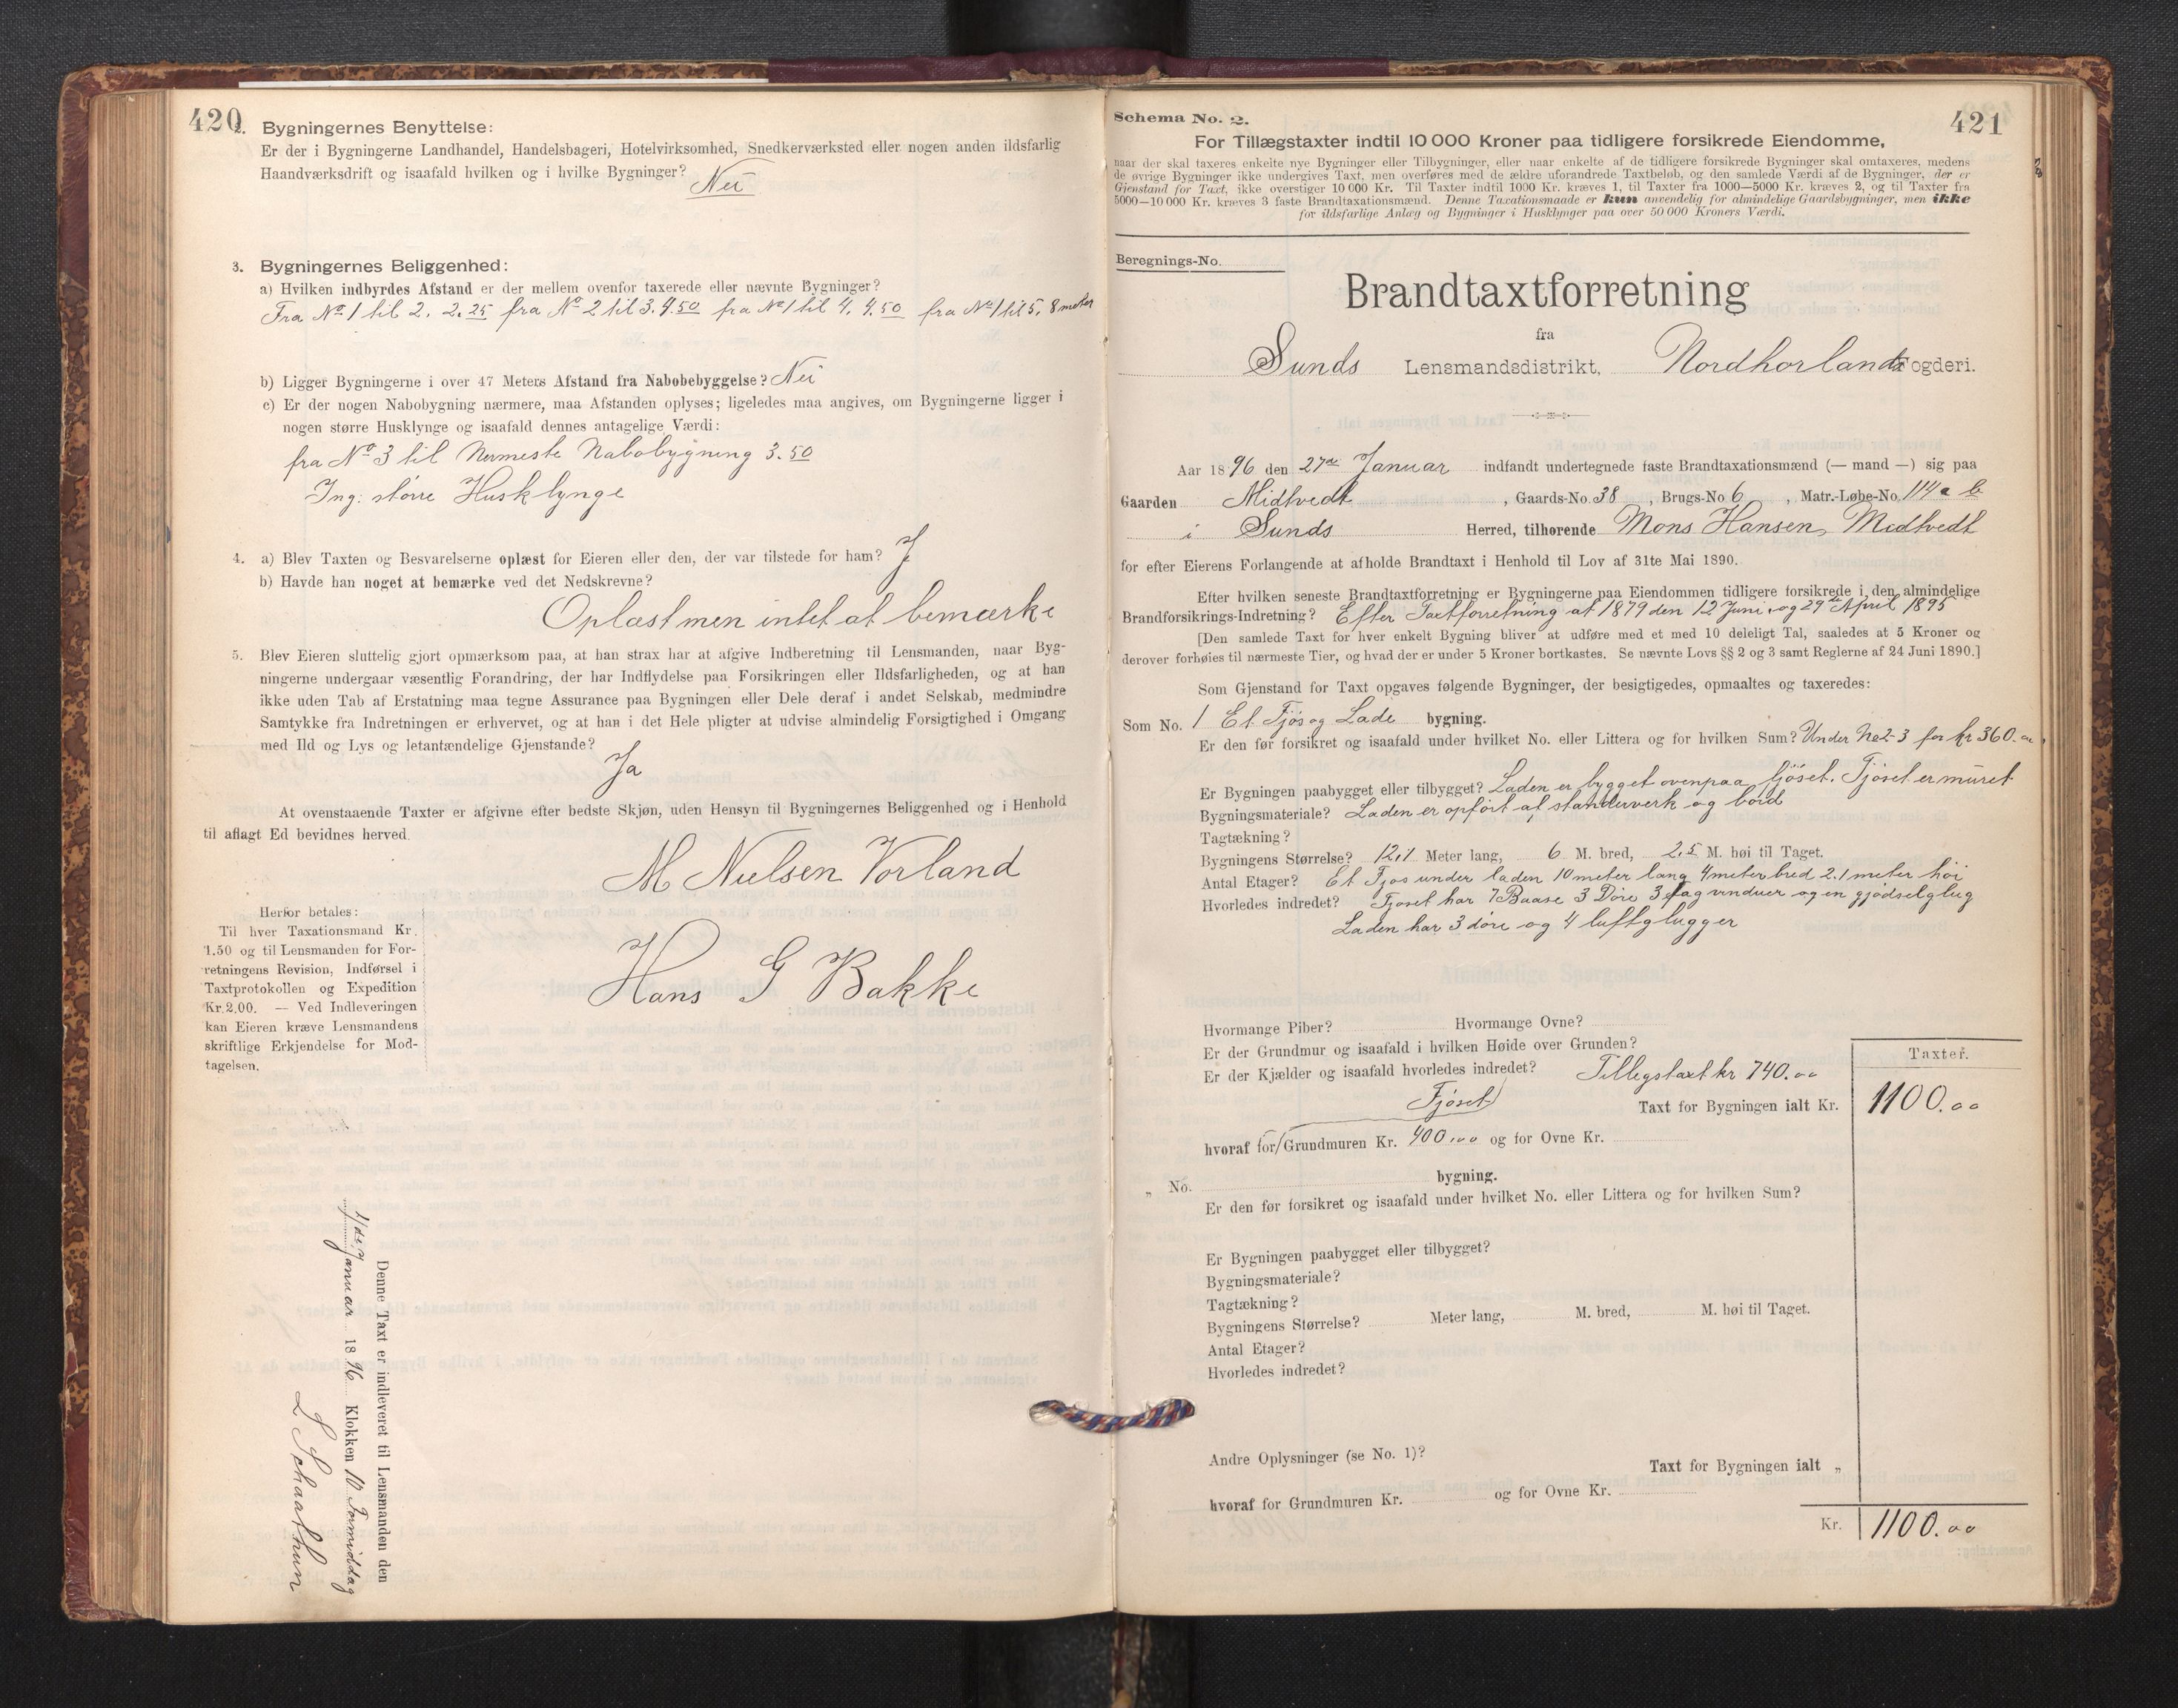 420
2. Bygningernes Benyttelse:
Er der i Bygningerne Landhandel, Handelsbageri, Hotelvirksomhed, Snedkerværksted eller nogen anden ildsfarlig
Haandværksdrift og isaafald hvilken og i hvilke Bygninger? Nei
3. Bygningernes Beliggenhed:
a) Hvilken indbyrdes Afstand er der mellem ovenfor taxerede eller nævnte Bygninger?
Fra No 1 til 2. 2.25 fra No 2 til 3. 4.50 fra No 1 til 4. 4.50 fra No 1 til 5, 8 meter
b) Ligger Bygningerne i over 47 Meters Afstand fra Nabobebyggelse? Nei
c) Er der nogen Nabobygning nærmere, maa Afstanden oplyses; ligeledes maa angives, om Bygningerne ligger i
nogen større Husklynge og isaafald dennes antagelige Værdi:
fra No 3 til Nermeste Nabobygning 3.50
Ing: större Husklynge
4. a) Blev Taxten og Besvarelserne oplæst for Eieren eller den, der var tilstede for ham? J
b) Havde han noget at bemærke ved det Nedskrevne?
Oplæst men intet at bemærke
5. Blev Eieren sluttelig gjort opmærksom paa, at han strax har at afgive Indberetning til Lensmanden, naar Byg-
ningerne undergaar væsentlig Forandring, der har Indflydelse paa Forsikringen eller Ildsfarligheden, og at han
ikke uden Tab af Erstatning maa tegne Assurance paa Bygningen eller Dele deraf i andet Selskab, medmindre
Samtykke fra Indretningen er erhvervet, og at han i det Hele pligter at udvise almindelig Forsigtighed i Omgang
med Ild og Lys og letantændelige Gjenstande?
Ja
At ovenstaaende Taxter er afgivne efter bedste Skjøn, uden Hensyn til Bygningernes Beliggenhed og i Henhold
til aflagt Ed bevidnes herved.
M Nielsen Vorland
Hans G Bakke
Herfor betales:
Til hver Taxationsmand Kr.
1.50 og til Lensmanden for For-
retningens Revision, Indførsel i
Taxtprotokollen og Expedition
Kr. 2,00. — Ved Indleveringen
kan Eieren kræve Lensmandens
skriftlige Erkjendelse for Mod-
tagelsen.
Denne Taxt er indleveret til Lensmanden den
Januar 1896 Klokken 10 Formiddag
L Schaathun
421
Schema No. 2.
For Tillægstaxter indtil 10 000 Kroner paa tidligere forsikrede Eiendomme,
naar der skal taxeres enkelte nye Bygninger eller Tilbygninger, eller naar enkelte af de tidligere forsikrede Bygninger skal omtaxeres, medens
de øvrige Bygninger ikke undergives Taxt, men overføres med de ældre uforandrede Taxtbeløb, og den samlede Værdi af de Bygninger, der er
Gjenstand for Taxt, ikke overstiger 10 000 Kr. Til Taxter indtil 1000 Kr. kræves 1, til Taxter fra 1000—5000 Kr. kræves 2, og til Taxter fra
5000—10 000 Kr. kræves 3 faste Brandtaxationsmænd. Denne Taxationsmaade er kun anvendelig for almindelige Gaardsbygninger, men ikke
for ildsfarlige Anlæg og Bygninger i Husklynger paa over 50 000 Kroners Værdi.
Beregnings-No.
Brandtaxtforretning
fra
Sunds Lensmandsdistrikt, Nordhorlands Fogderi.
Aar 1896 den 27de Januar indfandt undertegnede faste Brandtaxationsmænd (— mand —) sig paa
Gaarden Midtvedt, Gaards-No. 38, Brugs-No 6, Matr.-Løbe-No. 114 a b
i Sunds Herred, tilhørende Mons Hansen, Medtvedt
for efter Eierens Forlangende at afholde Brandtaxt i Henhold til Lov af 31te Mai 1890.
Efter hvilken seneste Brandtaxtforretning er Bygningerne paa Eiendommen tidligere forsikrede i den almindelige
Brandforsikrings-Indretning? Efter Taxtforretning af 1879 den 12 Juni og 29de April 1895
[Den samlede Taxt for hver enkelt Bygning bliver at udføre med et med 10 deleligt Tal, saaledes at 5 Kroner og
derover forhøies til nærmeste Tier, og hvad der er under 5 Kroner bortkastes. Se nævnte Lovs §§ 2 og 3 samt Reglerne af 24 Juni 1890.]
Som Gjenstand for Taxt opgaves følgende Bygninger, der besigtigedes, opmaaltes og taxeredes:
Som No. 1 Et Fjös og Lade bygning.
Er den før forsikret og isaafald under hvilket No. eller Littera og for hvilken Sum? Under No 2-3 for kr 360.00
Er Bygningen paabygget eller tilbygget? Laden er bygget ovenpaa fjöset. Fjöset er muret
Bygningsmateriale? Laden er opfört af standerverk og bord
Tagtækning?
Bygningens Størrelse? 12,1 Meter lang, 6 M. bred, 2,5 M. høi til Taget.
Antal Etager? Et Fjos under laden 10 meter lang 4 meter bred 2.1 meter höi
Hvorledes indredet? Fjoset har 7 Baase 3 Döre 3 fag vinduer og en gjödselglug
Laden har 3 döre og 4 luftglugger
Hvormange Piber? Hvormange Ovne?
Er der Grundmur og isaafald i hvilken Høide over Grunden?
Er der Kjælder og isaafald hvorledes indredet? Tillegstaxt kr 740.00
Taxter.
Fjöset
Taxt for Bygningen ialt Kr. 1100.00
hvoraf for Grundmuren Kr. 400.00 og for Ovne Kr.
„ No. bygning.
Er den før forsikret og isaafald under hvilket No. eller Littera og for hvilken Sum?
Er Bygningen paabygget eller tilbygget?
Bygningsmateriale?
Tagtækning?
Bygningens Størrelse? Meter lang, M. bred, M. høi til Taget.
Antal Etager?
Hvorledes indredet?
Andre Oplysninger (se No. 1)?
Taxt for Bygningen ialt „
hvoraf for Grundmuren Kr. og for Ovne Kr.
Kr. 1100.00